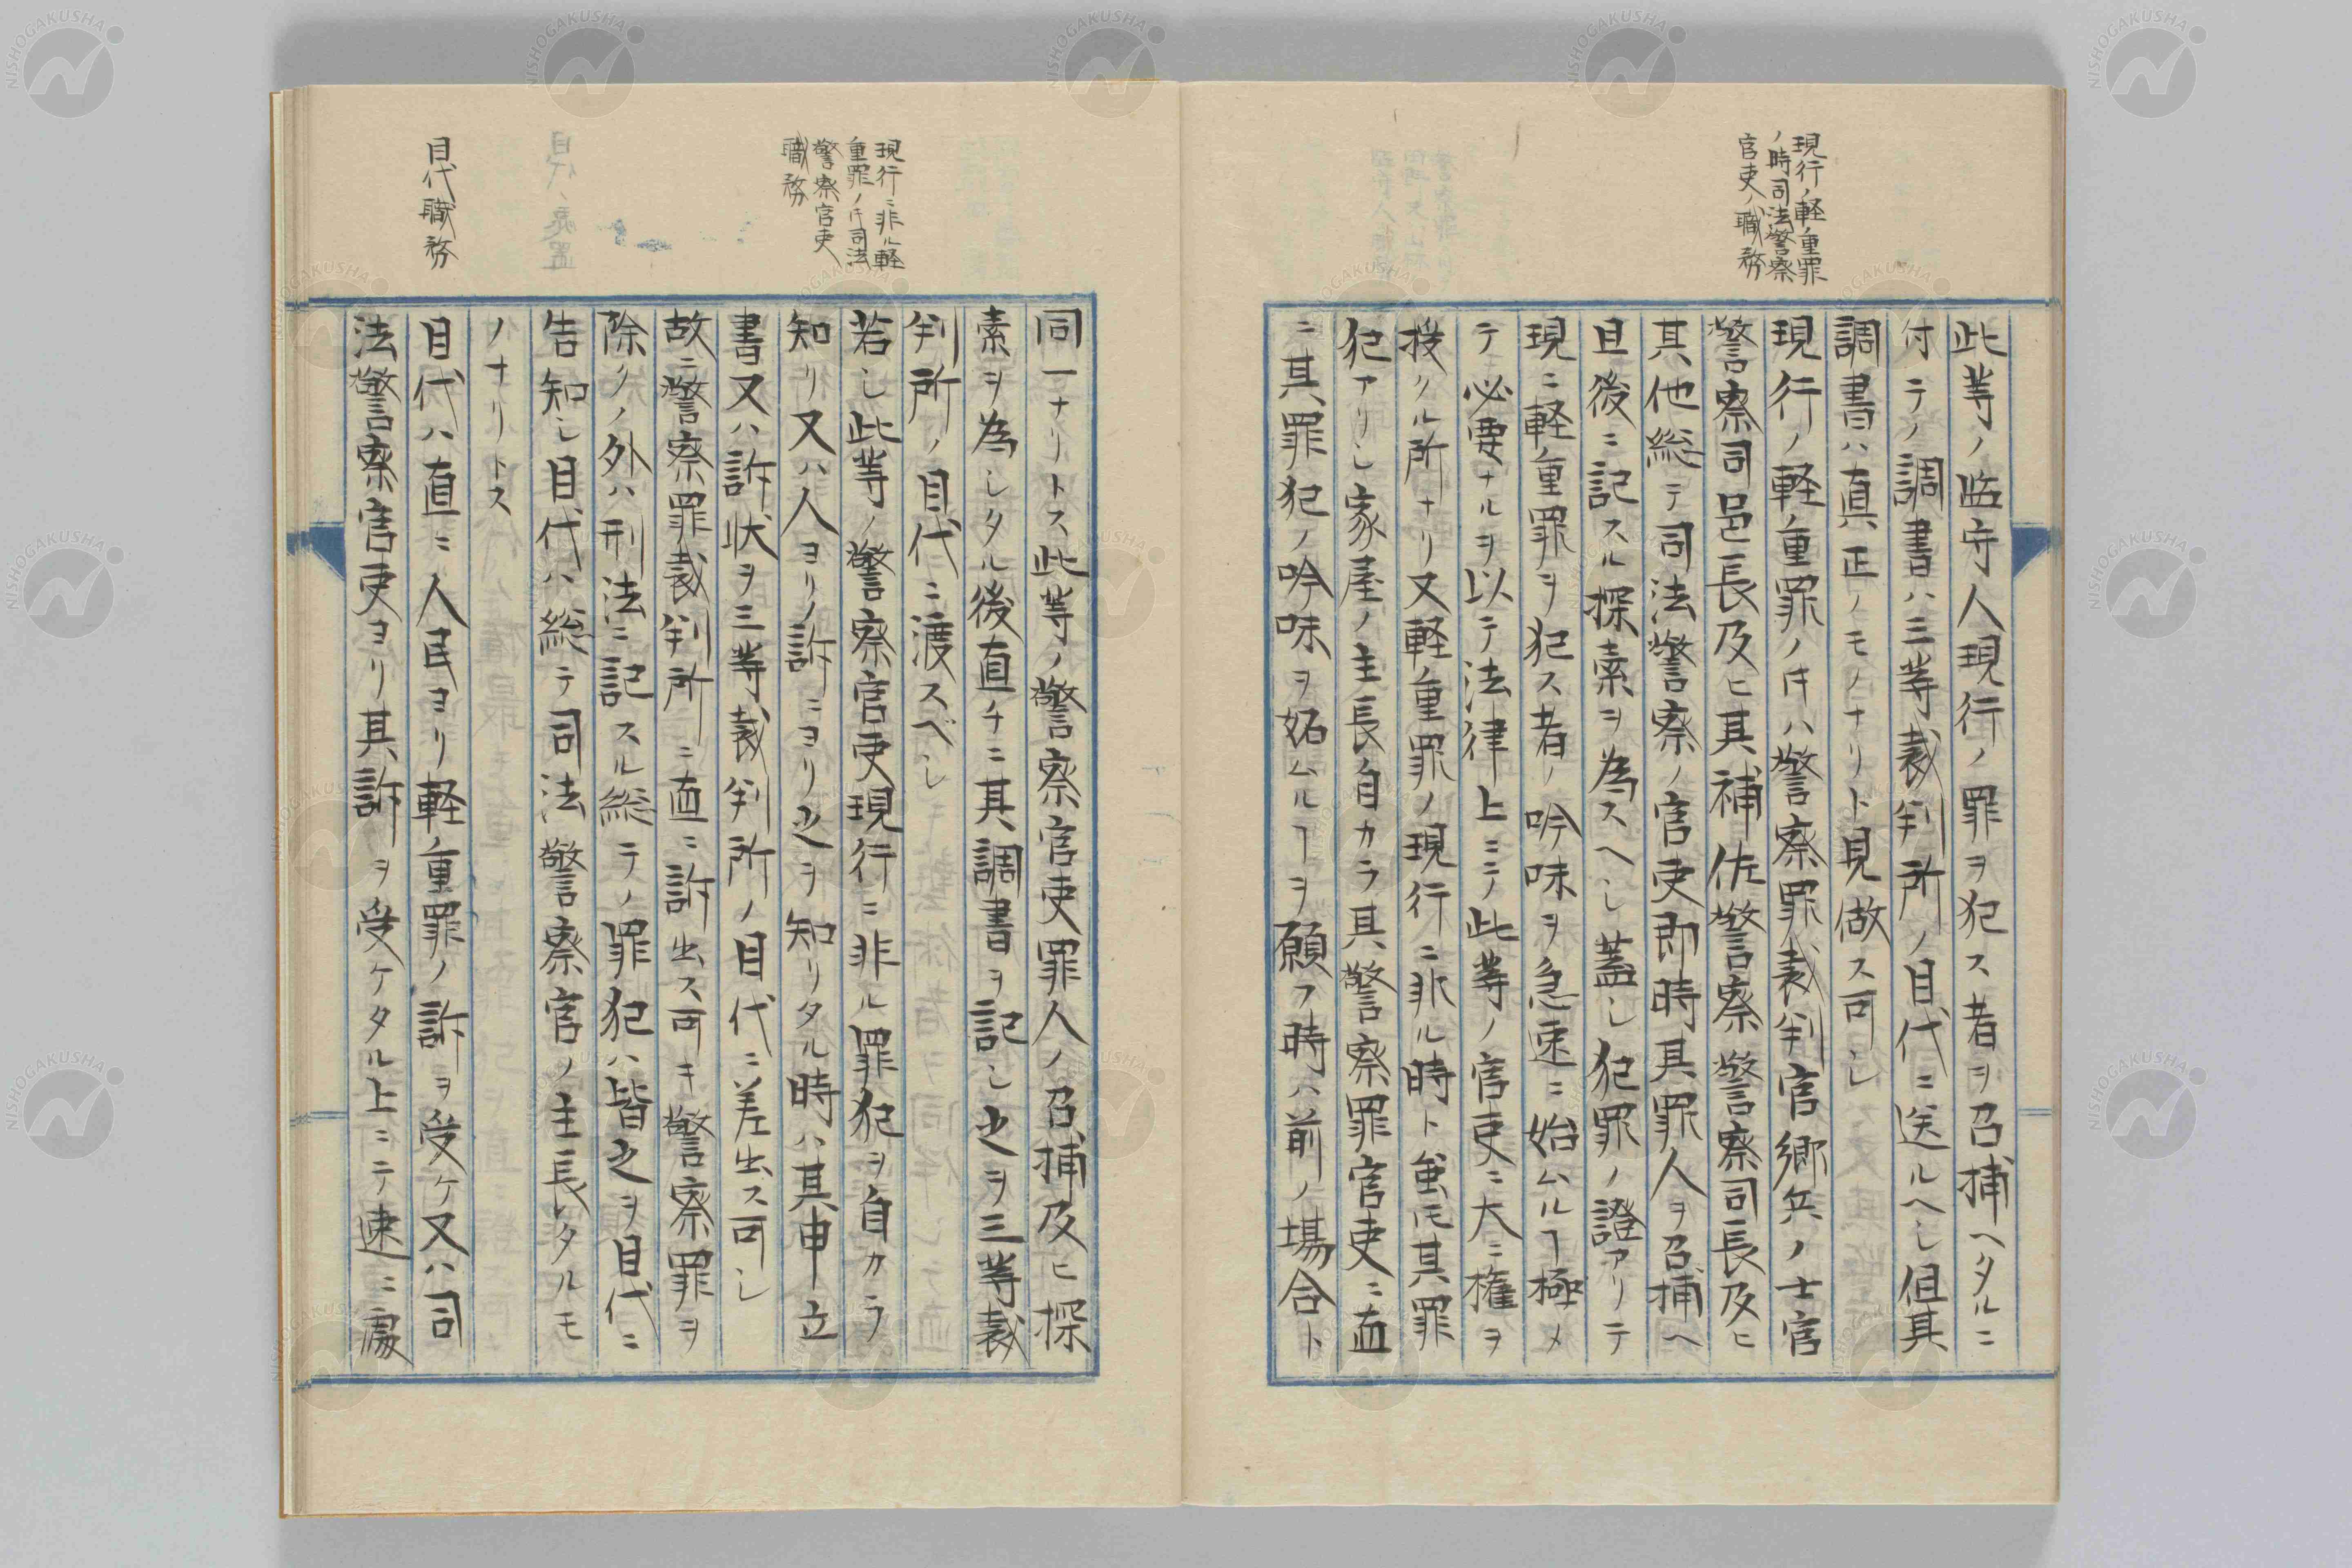 現行ノ軽重罪
ノ時司法警察
官吏ノ職務
此等ノ監守人現行ノ罪ヲ犯ス者ヲ召捕ヘタルニ
付テノ調書ハ三等裁判所ノ目代ニ送ルヘシ但其
調書ハ真正ノモノナリト見做ス可シ
現行ノ軽重罪ノ𪜈ハ警察罪裁判官郷兵ノ士官
警察司邑長及ヒ其補佐警察警察司長及ヒ
其他総テ司法警察ノ官吏即時其罪人ヲ召捕ヘ
且後ニ記スル探索ヲ為スヘシ蓋シ犯罪ノ證アリテ
現ニ軽重罪ヲ犯ス者ノ吟味ヲ急速ニ始ムルヿ極メ
テ必要ナルヲ以テ法律上ニテ此等ノ官吏ニ大ニ権ヲ
授クル所ナリ又軽重罪ノ現行ニ非ル時ト虽𪜈其罪
犯アリシ家屋ノ主長自カラ其警察罪官吏ニ直
ニ其罪犯ノ吟味ヲ始ムルヿヲ願フ時ハ前ノ場合ト
現行ニ非ル軽
重罪ノ𪜈司法
警察官吏
職務
目代職務
同一ナリトス此等ノ警察官吏罪人ノ召捕及ヒ探
索ヲ為シタル後直チニ其調書ヲ記シ之ヲ三等裁
判所ノ目代ニ渡スベシ
若シ此等ノ警察官吏現行ニ非ル罪犯ヲ自カラ
知リ又ハ人ヨリノ訴ニヨリ之ヲ知リタル時ハ其申立
書又ハ訴状ヲ三等裁判所ノ目代ニ差出ス可シ
故ニ警察罪裁判所ニ直ニ訴出ス可キ警察罪ヲ
除クノ外ハ刑法ニ記スル総テノ罪犯ハ皆之ヲ目代ニ
告知シ目代ハ総テ司法警察官ノ主長タルモ
ノナリトス
目代ハ直ニ人民ヨリ軽重罪ノ訴ヲ受ケ又ハ司
法警察官吏ヨリ其訴ヲ受ケタル上ニテ速ニ處
NISHOGAKUSHA